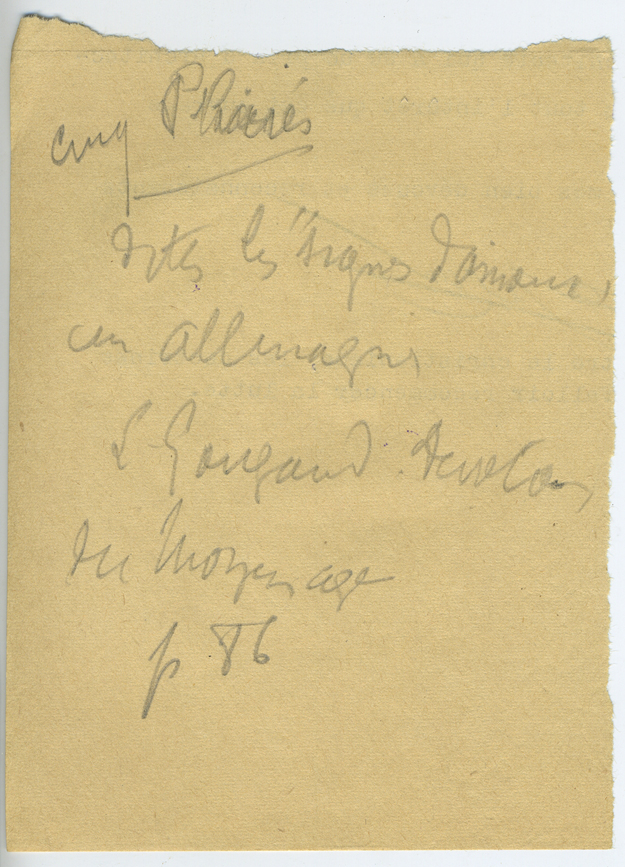 cinq Plaies
dites les "signes d'amour,
en Allemagne
L Gougaud. Devotions
du Moyen age
p 86